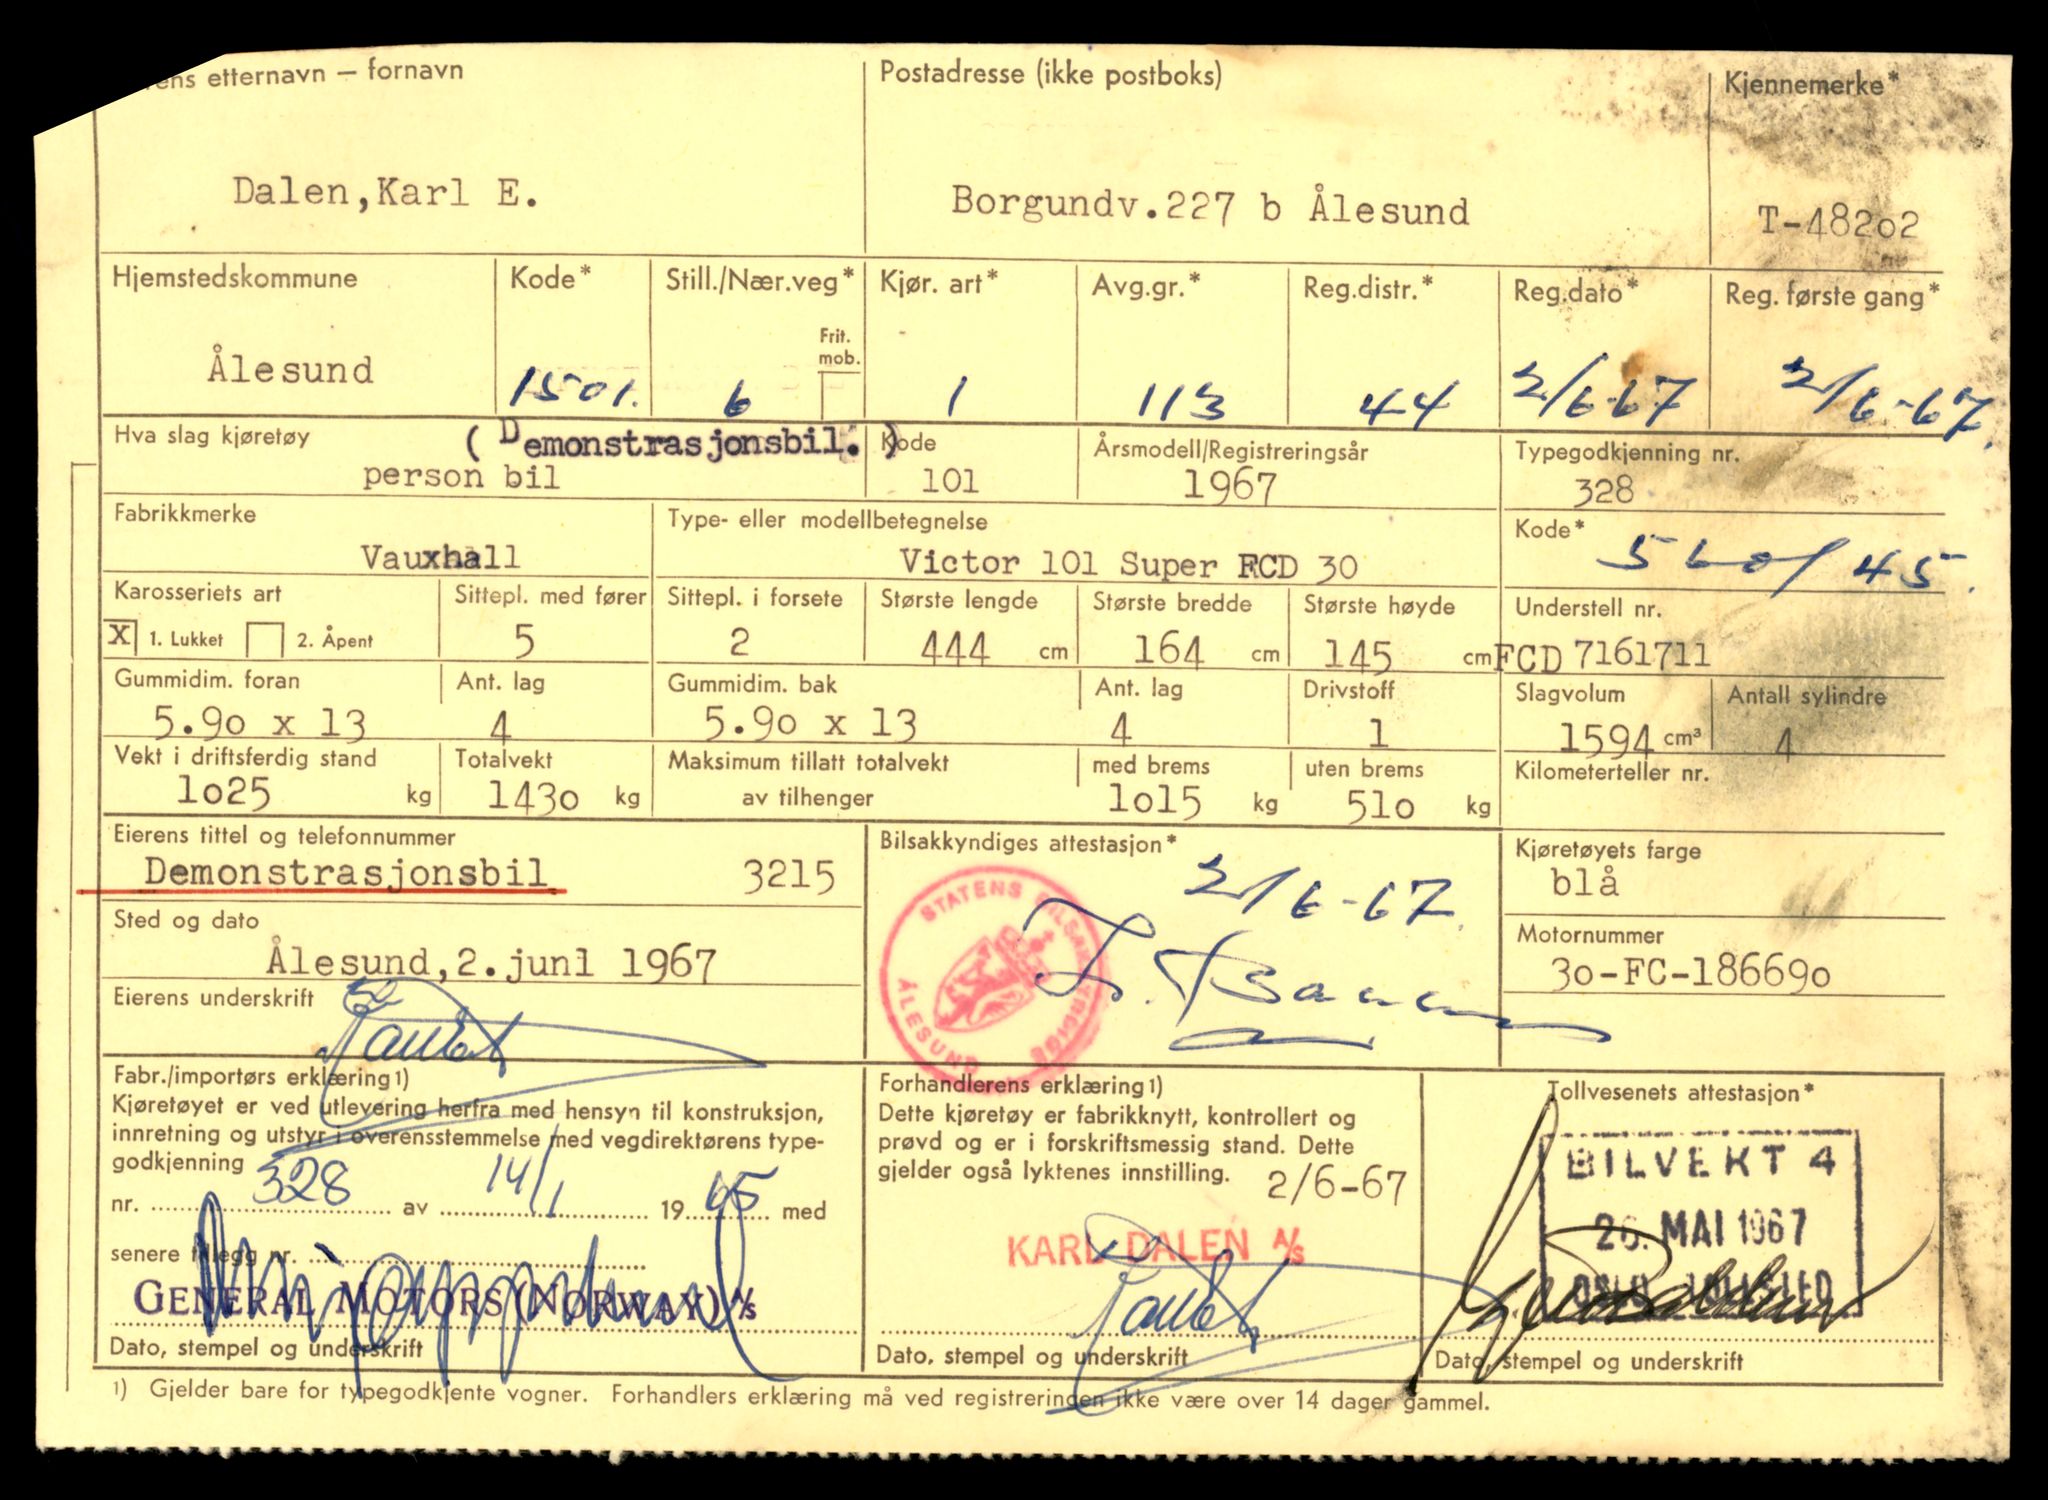 ens etternavn – fornavn
Postadresse (ikke postboks)
Kjennemerke*
Dalen,Karl E.
Borgundv.227 b Ålesund
T-48202
Hjemstedskommune
Kode*
Still./Nær.veg*
Kjør. art*
Avg.gr.*
Reg.distr.*
Reg.dato*
Reg. første gang*
Frit. mob.
Ålesund
1501.
6
1
113
44
2/6-67
2/6-67.
Hva slag kjøretøy
(Demonstrasjonsbil.)
Kode
Årsmodell/Registreringsår
Typegodkjenning nr.
person bil
101
1967
328
Fabrikkmerke
Type- eller modellbetegnelse
Kode*
Vauxhall
Victor 101 Super FCD 30
5601 45.
Karosseriets art
Sittepl. med fører
Sittepl. i forsete
Største lengde
Største bredde
Største høyde
Understell nr.
X 1. Lukket
2. Åpent
5
2
444 cm
164 cm
145 cm
FCD 7161711
Gummidim. foran
Ant. lag
Gummidim. bak
Ant. lag
Drivstoff
Slagvolum
Antall sylindre
5.90 x 13
4
5.90 x 13
4
1
1594 cm³
4
Vekt i driftsferdig stand
Totalvekt
Maksimum tillatt totalvekt
av tilhenger
med brems
uten brems
Kilometerteller nr.
1025 kg
1430 kg
1015 kg
510 kg
Eierens tittel og telefonnummer
Bilsakkyndiges attestasjon*
Kjøretøyets farge
Demonstrasjonsbil 3215
2/6-67.
blå
STATENS BILSAKKYNDIGE
ÅLESUND
Sted og dato
Motornummer
Ålesund,2.juni 1967
30-FC-186690
Eierens underskrift
Fabr./importørs erklæring1)
Kjøretøyet er ved utlevering herfra med hensyn til konstruksjon,
innretning og utstyr i overensstemmelse med vegdirektørens type-
godkjenning
nr. 328 av 14/1 1965 med
senere tillegg nr.
GENERAL MOTORS (NORWAY) A/S
Dato, stempel og underskrift
Forhandlerens erklæring1)
Dette kjøretøy er fabrikknytt, kontrollert og
prøvd og er i forskriftsmessig stand. Dette
gjelder også lyktenes innstilling. 2/6-67
KARL DALEN A/S
Dato, stempel og underskrift
Tollvesenets attestasjon*
BILVEKT 4
26. MAI 1967
OSLO TOLLSTED
Dato, stempel og underskrift
1) Gjelder bare for typegodkjente vogner. Forhandlers erklæring må ved registreringen ikke være over 14 dager gammel.